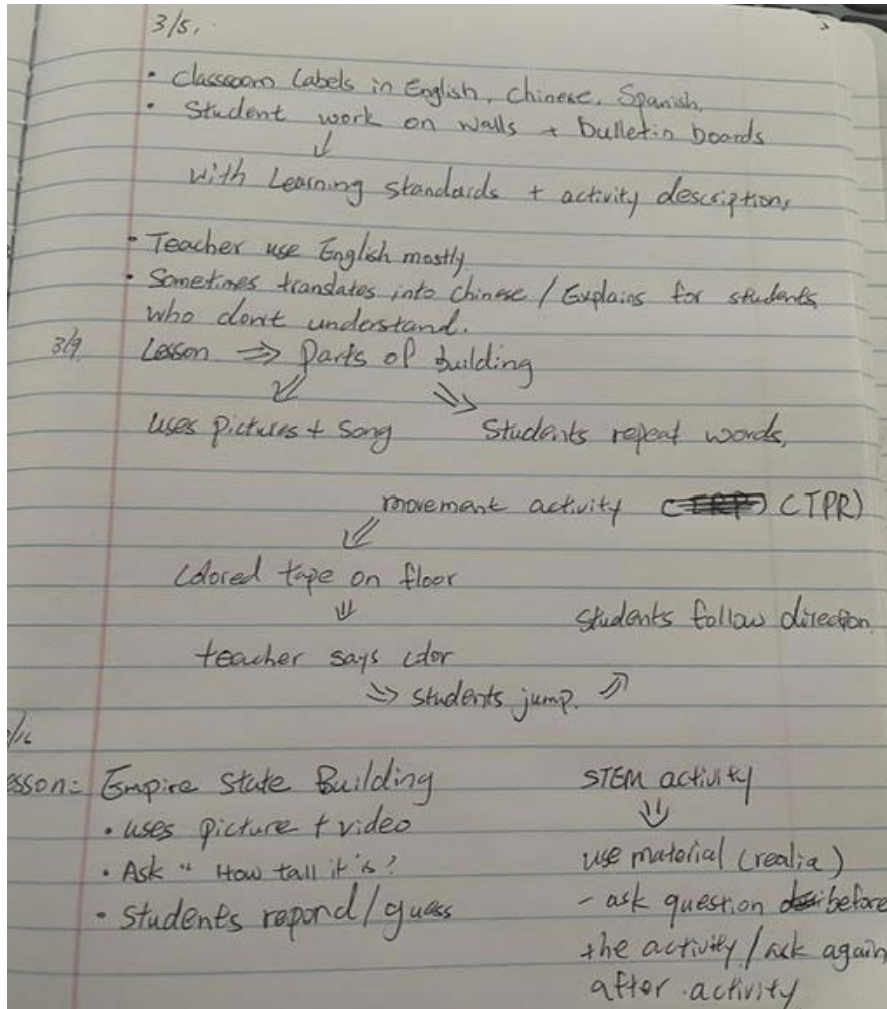 3/5,
• Classroom Labels in English, Chinese, Spanish,
• Student work on walls + bulletin boards
↓
with Learning standards + activity description,
• Teacher use English mostly
• Sometimes translates into Chinese / Explains for students
who don't understand.
3/9 Lesson ⇒ Parts of building
uses pictures + song Students repeat words,
movement activity (TPR)
Colored tape on floor
⇓
Students follow direction.
teacher says color
⇒ students jump. ⇗
/16
esson: Empire State Building
• uses picture + video
• Ask " How tall it is?
• Students repond / guess
STEM activity
⇓
use material (realia)
- ask question before
the activity / ask again
after activity